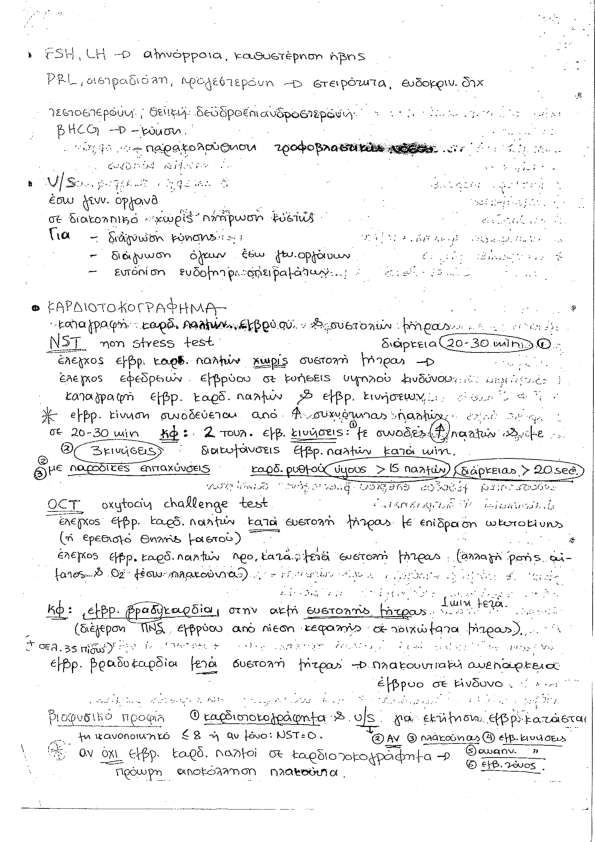 FSH, LH → αμηνόρροια, καθυστέρηση ήβης
PRL, οιστραδιόλη, προγεστερόνη → στειρότητα, ενδοκριν. δτχ
τεστοστερόνη, θειική δεϋδροεπιανδροστερόνη
βHCG → κύηση
παρακολούθηση τροφοβλαστικής νόσου
U/S
έσω γενν. όργανα
σε διακολπικό χωρίς πλήρωση κύστης
Για - διάγνωση κύησης
- διάγνωση όγκων έσω γεν. οργάνων
- εντόπιση ενδομητρ. σπειραμάτων
ΚΑΡΔΙΟΤΟΚΟΓΡΑΦΗΜΑ
καταγραφή καρδ. παλμών εμβρύου & συστολών μήτρας
NST non stress test διάρκεια 20-30 min ①
έλεγχος εμβρ. καρδ. παλμών χωρίς συστολή μήτρας →
έλεγχος εφεδρειών εμβρύου σε κυήσεις υψηλού κινδύνου
καταγραφή εμβρ. καρδ. παλμών & εμβρ. κινήσεων
* εμβρ. κίνηση συνοδεύεται από ↑ συχνότητας παλμών
σε 20-30 min κφ: 2 τουλ. εμβ. κινήσεις: με συνοδές ↑ παλμών με
② 3 κινήσεις διακυμάνσεις εμβρ. παλμών κατά min.
③ με παροδικές επιταχύνσεις καρδ. ρυθμού ύψους > 15 παλμών, διάρκειας > 20 sec
OCT oxytocin challenge test
έλεγχος εμβρ. καρδ. παλμών κατά συστολή μήτρας με επίδραση ωκυτοκίνης
(ή ερεθισμό θηλής μαστού)
έλεγχος εμβρ. καρδ. παλμών προ, κατά, μετά συστολή μήτρας (αλλαγή ροής αί-
ματος & O2 μέσω πλακούντα)
1 min μετά.
κφ: εμβρ. βραδυκαρδία στην ακμή συστολής μήτρας
(διέγερση ΠΝΣ εμβρύου από πίεση κεφαλής σε τοιχώματα μήτρας)
+ σελ. 35 πίσω
εμβρ. βραδυκαρδία μετά συστολή μήτρας → πλακουντιακή ανεπάρκεια
έμβρυο σε κίνδυνο.
βιοφυσικό προφίλ ① καρδιοτοκογράφημα & U/S για εκτίμηση εμβρ. κατάστασ
μη ικανοποιητικό ≤ 8 ή αν μόνο: NST=0. ② ΑΥ ③ πλακούντας ④ εμβ. κινήσεις
* αν όχι εμβρ. καρδ. παλμοί σε καρδιοτοκογράφημα → ⑤ αναπν. "
πρόωρη αποκόλληση πλακούντα. ⑥ εμβ. τόνος.